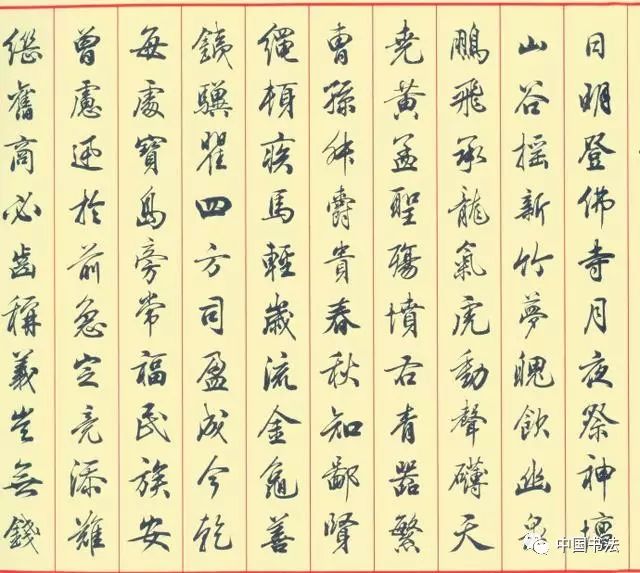 日明登佛寺月夜祭神壇
山谷摇新竹夢魄飲幽泉
鵬飛承龍氣虎動聲礴天
堯黄孟聖殤墳古青器繁
曹孫爵貴春秋知鄙賢
繩頓疾馬輕歲流金龜善
驥瞿四方司盈成今乾
每處寶島旁常福民族安
曾慮於前急定竟添難
继舊商必齒稱義豈無錢
中国书法